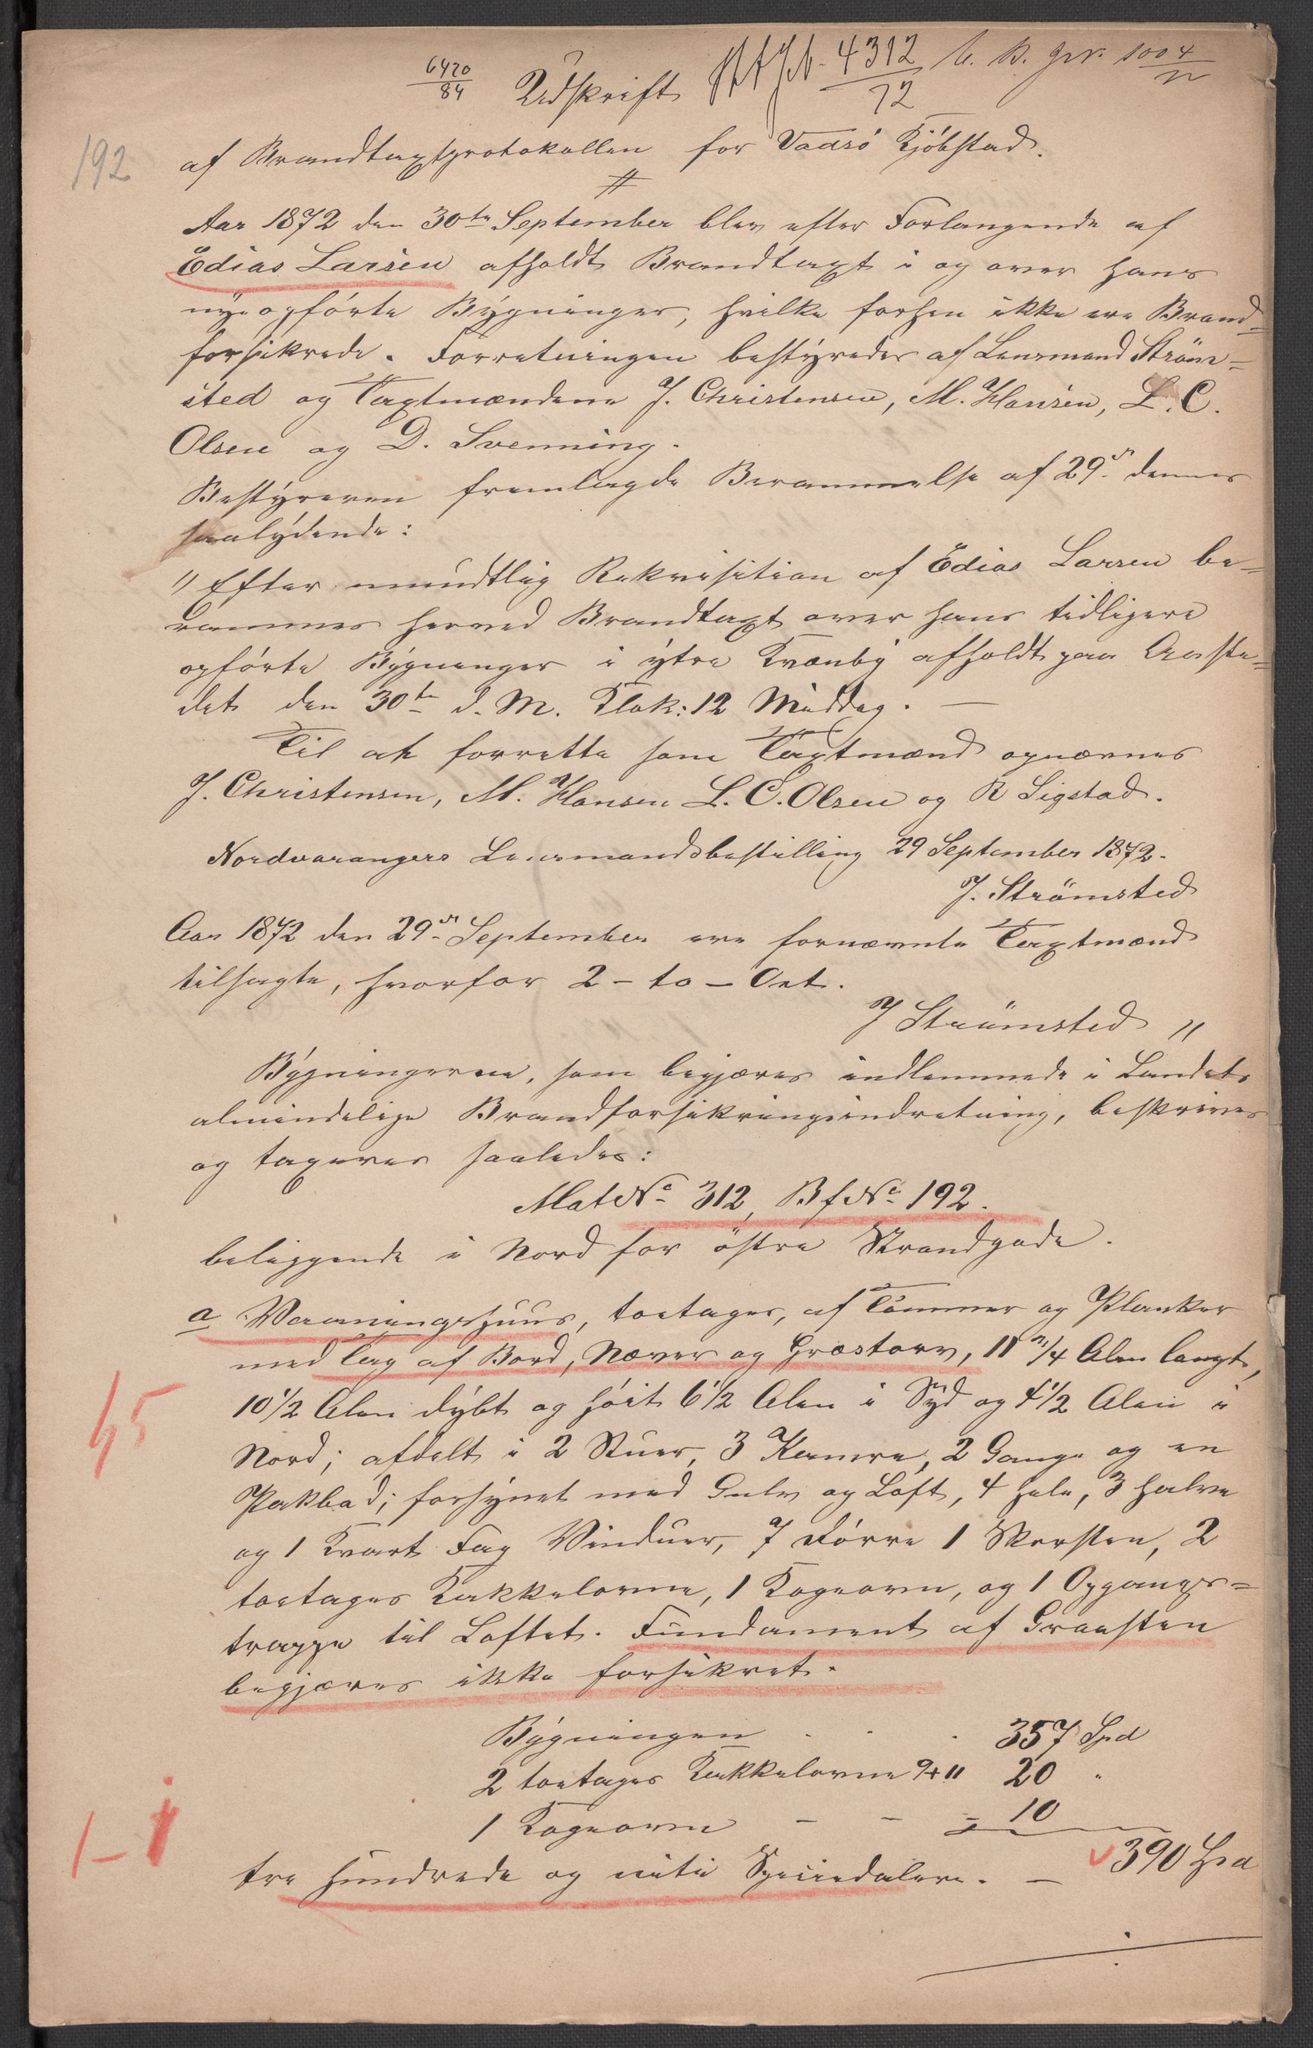 6420
84
Udskrift
4312
72
1004
192
af Brandtaxtprotokollen for Vadsö Kjöbstad.
Aar 1872 den 30te September blev efter Forlangende af
Edias Larsen afholdt Brandtaxt i og over hans
nye opförte Bygninger, hvilke forhen ikke ere Brand-
forsikrede. Forretningen bestyredes af Lensmand Ström-
sted og Taxtmændene J. Christensen, M. Hansen, L. C.
Olsen og D. Svenning.
Bestyreren fremlagde Berammelse af 29de dennes
saalydende:
"Efter mundtlig Rekvisition af Edias Larsen be-
rammes herved Brandtaxt over hans tidligere
opförte Bygninger i ytre Kvænby afholdt paa Aaste-
det den 30te d. M. Klok: 12 Middag. —
Til at forrette som Taxtmænd opnævnes
J. Christensen, M. Hansen L. C. Olsen og R Sigstad.
Nordvarangers Lensmandsbestilling 29 September 1872.
J. Strömsted
Aar 1872 den 29de September ere fornævnte Taxtmænd
tilsagte, hvorfor 2 - to - Ort.
J Strömsted "
Bygningerne, som begjæres indlemmede i Landets
almindelige Brandforsikringsindretning, beskrives
og taxeres saaledes:
Mat No 312, Bf No 192.
beliggende i Nord for östre Strandgade.
a Vaaningshuus, toetages, af Tömmer og Planker
med Tag af Bord, Næver og Græstorv, 11 3/4 Alen langt,
10 1/2 Alen dybt og höit 6 1/2 Alen i Syd og 4 1/2 Alen i
Nord; afdelt i 2 Stuer, 3 Kamre, 2 Gange og en
Pakbod; forsynet med Gulv og Loft, 4 hele, 3 halve
og 1 Kvart Fag Vinduer, 7 Dörre 1 Skorsten, 2
toetages Kakkelovne, 1 Kogeovn, og 1 Opgangs-
trappe til Loftet. Fundament af Graasten
begjæres ikke forsikret.
Bygningen . . . 357 Spd
2 toetages Kakkelovne 9+11 20 "
1 Kogeovn - - - 10
390 Spd
tre hundrede og niti Speciedaler. —